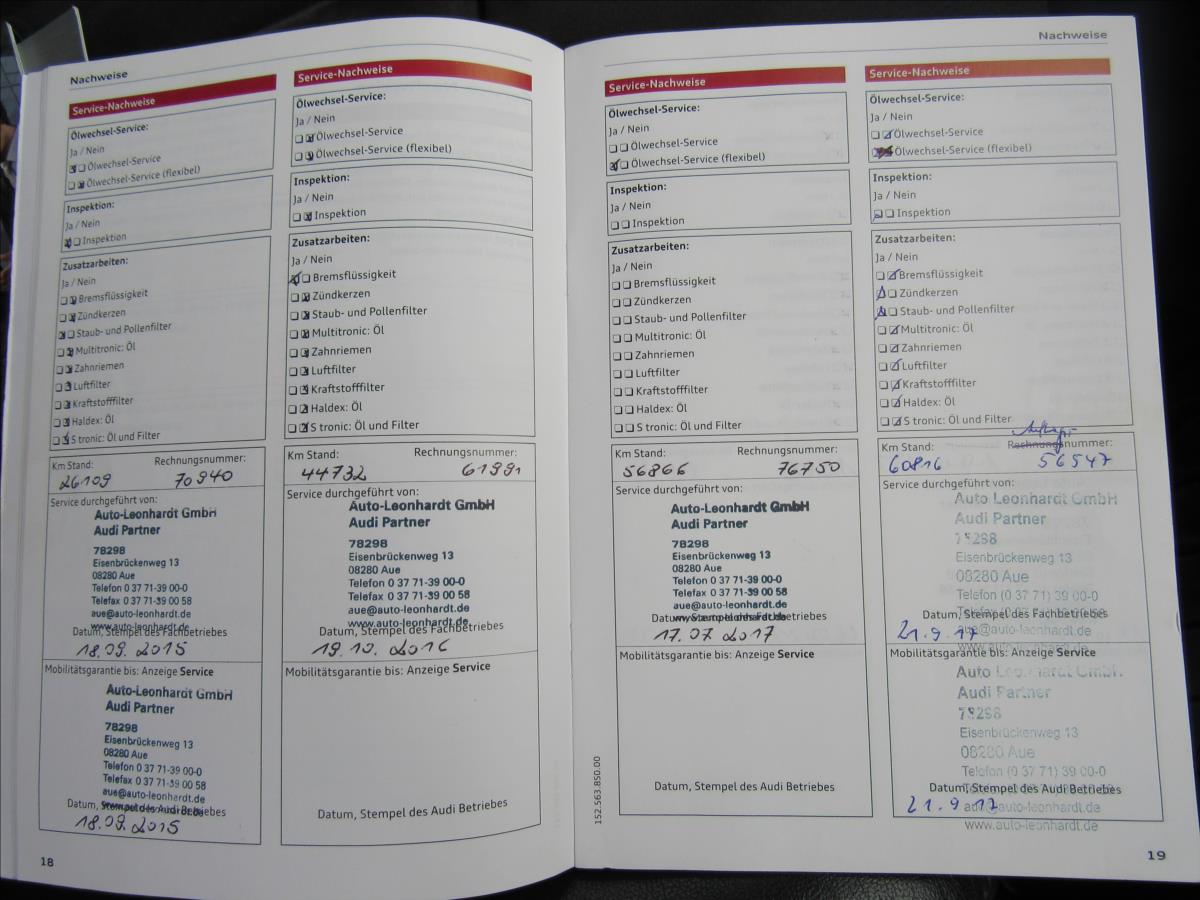 Nachweise
Service-Nachweise
Ölwechsel-Service:
Ja / Nein
Ölwechsel-Service
Ölwechsel-Service (flexibel)
Inspektion:
Ja / Nein
Inspektion
Zusatzarbeiten:
Ja / Nein
Bremsflüssigkeit
Zündkerzen
Staub- und Pollenfilter
Multitronic: Öl
Zahnriemen
Luftfilter
Kraftstofffilter
Haldex: Öl
S tronic: Öl und Filter
Km Stand: Rechnungsnummer:
26109 70940
Service durchgeführt von:
Auto-Leonhardt GmbH
Audi Partner
78298
Eisenbrückenweg 13
08280 Aue
Telefon 0 37 71-39 00-0
Telefax 0 37 71-39 00 58
aue@auto-leonhardt.de
www.auto-leonhardt.de
Datum, Stempel des Fachbetriebes
18.09.2015
Mobilitätsgarantie bis: Anzeige Service
Auto-Leonhardt GmbH
Audi Partner
78298
Eisenbrückenweg 13
08280 Aue
Telefon 0 37 71-39 00-0
Telefax 0 37 71-39 00 58
aue@auto-leonhardt.de
www.auto-leonhardt.de
Datum, Stempel des Audi Betriebes
18.09.2015
18
Service-Nachweise
Ölwechsel-Service:
Ja / Nein
Ölwechsel-Service
Ölwechsel-Service (flexibel)
Inspektion:
Ja / Nein
Inspektion
Zusatzarbeiten:
Ja / Nein
Bremsflüssigkeit
Zündkerzen
Staub- und Pollenfilter
Multitronic: Öl
Zahnriemen
Luftfilter
Kraftstofffilter
Haldex: Öl
S tronic: Öl und Filter
Km Stand: Rechnungsnummer:
44732 61991
Service durchgeführt von:
Auto-Leonhardt GmbH
Audi Partner
78298
Eisenbrückenweg 13
08280 Aue
Telefon 0 37 71-39 00-0
Telefax 0 37 71-39 00 58
aue@auto-leonhardt.de
www.auto-leonhardt.de
Datum, Stempel des Fachbetriebes
19.10.2016
Mobilitätsgarantie bis: Anzeige Service
Datum, Stempel des Audi Betriebes
Nachweise
Service-Nachweise
Ölwechsel-Service:
Ja / Nein
Ölwechsel-Service
Ölwechsel-Service (flexibel)
Inspektion:
Ja / Nein
Inspektion
Zusatzarbeiten:
Ja / Nein
Bremsflüssigkeit
Zündkerzen
Staub- und Pollenfilter
Multitronic: Öl
Zahnriemen
Luftfilter
Kraftstofffilter
Haldex: Öl
S tronic: Öl und Filter
Km Stand: Rechnungsnummer:
56866 76750
Service durchgeführt von:
Auto-Leonhardt GmbH
Audi Partner
78298
Eisenbrückenweg 13
08280 Aue
Telefon 0 37 71-39 00-0
Telefax 0 37 71-39 00 58
aue@auto-leonhardt.de
www.auto-leonhardt.de
Datum, Stempel des Fachbetriebes
17.07.2017
Mobilitätsgarantie bis: Anzeige Service
Datum, Stempel des Audi Betriebes
152.563.850.00
Service-Nachweise
Ölwechsel-Service:
Ja / Nein
Ölwechsel-Service
Ölwechsel-Service (flexibel)
Inspektion:
Ja / Nein
Inspektion
Zusatzarbeiten:
Ja / Nein
Bremsflüssigkeit
Zündkerzen
Staub- und Pollenfilter
Multitronic: Öl
Zahnriemen
Luftfilter
Kraftstofffilter
Haldex: Öl
S tronic: Öl und Filter
Auftrags-
Km Stand: Rechnungsnummer:
60816 56547
Service durchgeführt von:
Auto Leonhardt GmbH
Audi Partner
78298
Eisenbrückenweg 13
08280 Aue
Telefon (0 37 71) 39 00-0
Datum, Stempel des Fachbetriebes
21.9.17
Mobilitätsgarantie bis: Anzeige Service
Auto Leonhardt GmbH
Audi Partner
78298
Eisenbrückenweg 13
08280 Aue
Telefon (0 37 71) 39 00-0
Datum, Stempel des Audi Betriebes
21.9.17
www.auto-leonhardt.de
19